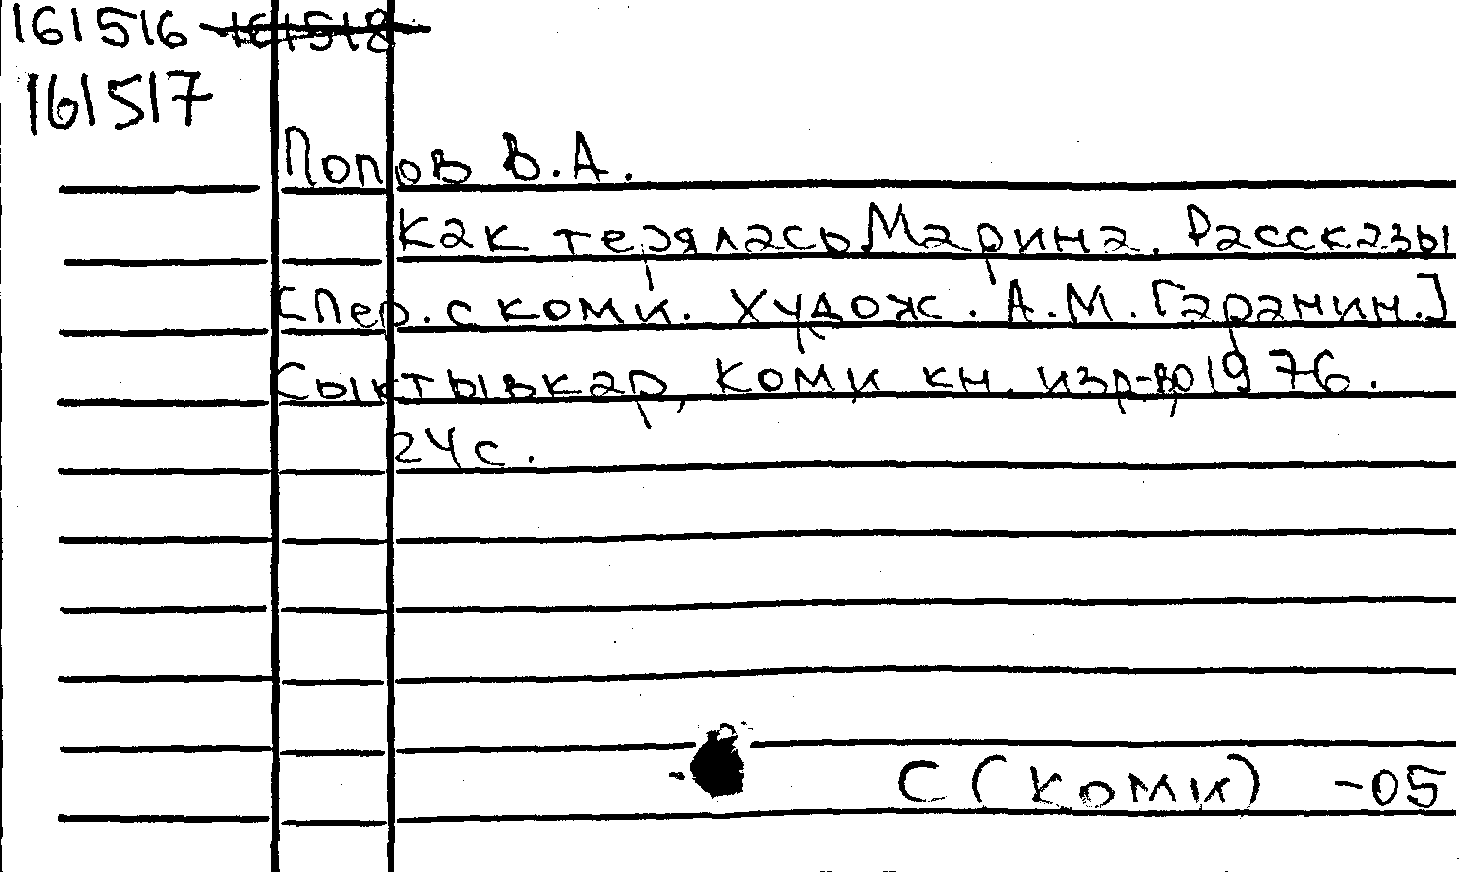 161516 161518
161517
Попов В.А.
Как терялась Марина. Рассказы
[Пер. с коми. Худож. А.М. Гаранин.]
Сыктывкар, Коми кн. изд-во 1976.
24 с.
С (Коми) -05